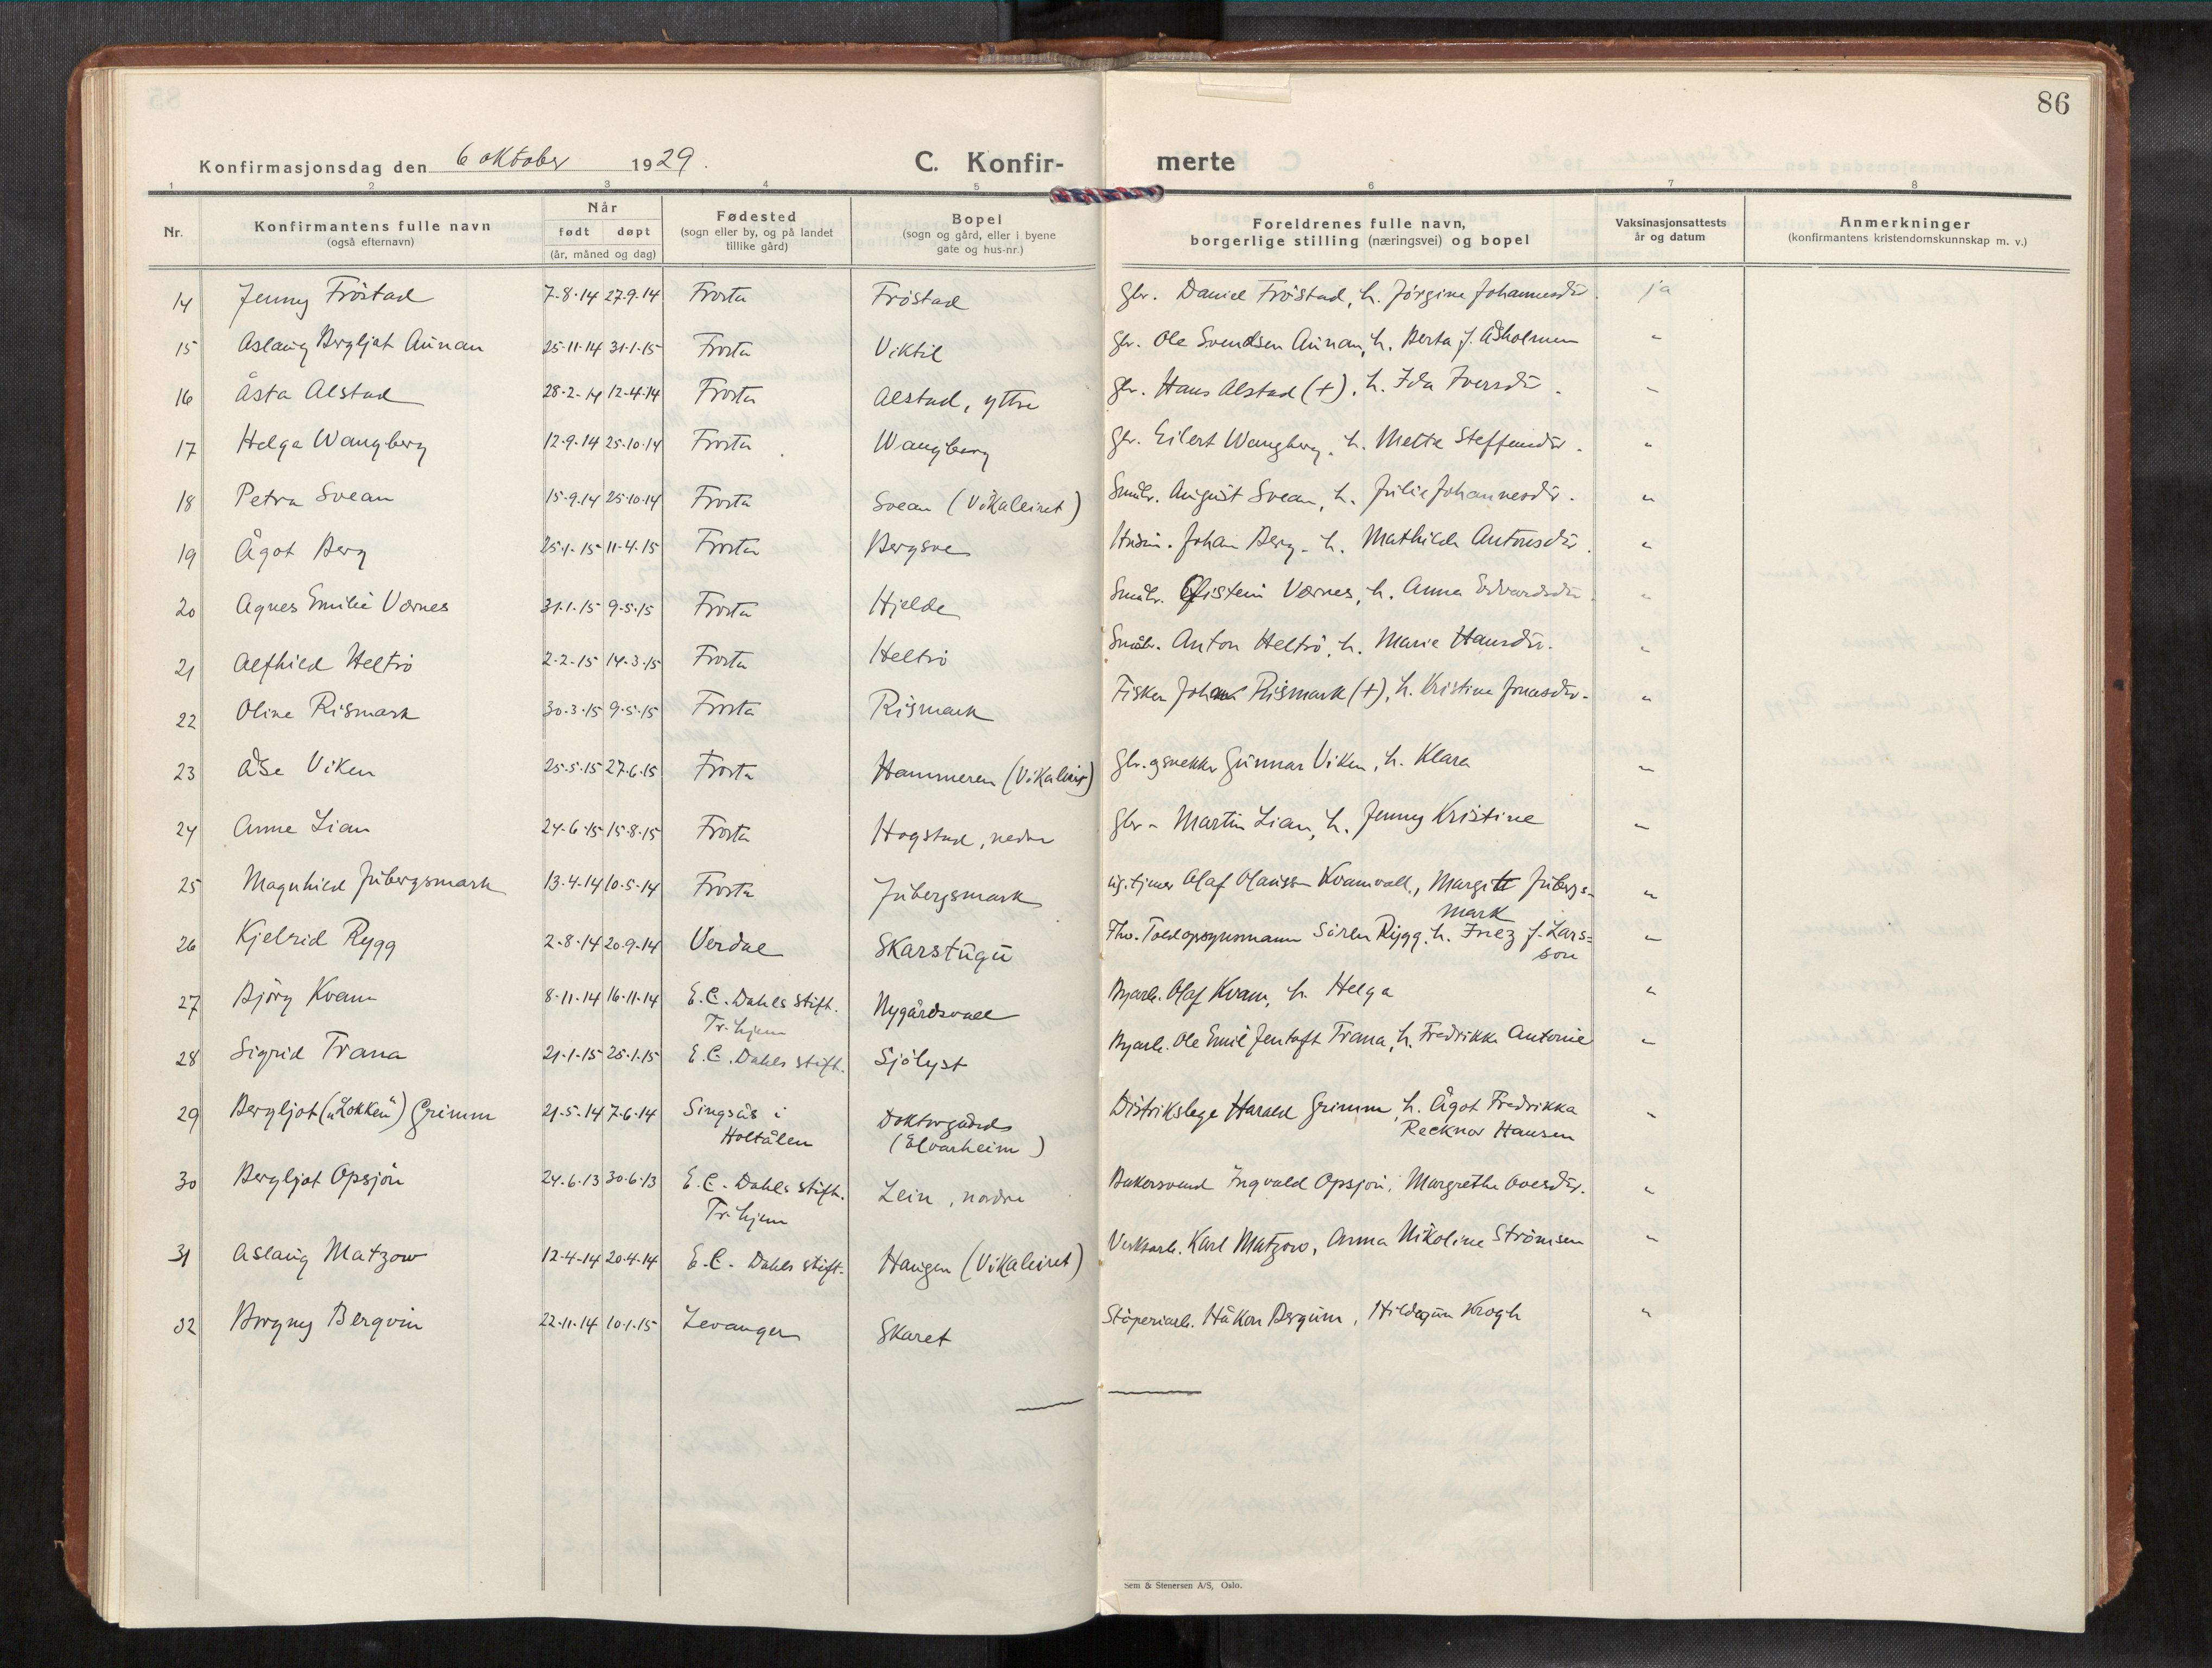 86
Konfirmasjonsdag den 6 oktober 1929.
C. Konfir- merte
1 2 3 4 5 6 7 8
Nr.
Konfirmantens fulle navn
(også efternavn)
Når
født døpt
(år, måned og dag)
Fødested
(sogn eller by, og på landet
tillike gård)
Bopel
(sogn og gård, eller i byene
gate og hus-nr.)
Foreldrenes fulle navn,
borgerlige stilling (næringsvei) og bopel
Vaksinasjonsattests
år og datum
Anmerkninger
(konfirmantens kristendomskunnskap m. v.)
14 Jenny Fröstad 7-8-14 27.9.14 Frosta Fröstad Gbr. Daniel Fröstad, h. Jörgine Johannesdtr. ja
15 Aslaug Bergljot Aunan 25-11-14 31-1-15 Frosta Viktil Gbr. Ole Svendsen Aunan, h. Berta f. Åsholmen "
16 Åsta Alstad 28-2-14 12-4-14 Frosta Alstad, yttre Gbr. Hans Alstad (+), h. Ida Iversdtr. "
17 Helga Wangberg 12-9-14 25-10-14 Frosta Wangberg Gbr. Eilert Wangberg, h. Mette Steffensdtr. "
18 Petra Svean 15-9-14 25-10-14 Frosta Svean (Vikaleiret) Småbr. August Svean, h. Julie Johannesdtr. "
19 Ågot Berg 25-1-15 11-4-15 Frosta Bergsve Husm. Johan Berg, h. Mathilde Antonsdtr. "
20 Agnes Emilie Værnes 31-1-15 9-5-15 Frosta Hjelde Småbr. Eistein Værnes, h. Anna Edvardsdtr. "
21 Alfhild Heltrö 2-2-15 14-3-15 Frosta Heltrö Småbr. Anton Heltrö, h. Marie Hansdtr. "
22 Oline Rismark 30-3-15 9-5-15 Frosta Rismark Fisker Johan Rismark (+), h. Kristine Jonasdtr. "
23 Åse Viken 25-5-15 27-6-15 Frosta Hammeren (Vikaleiret) Gbr. og snekker Gunnar Viken, h. Klara "
24 Anne Lian 24-6-15 15-8-15 Frosta Hogstad, nedre Gbr. Martin Lian, h. Jenny Kristine "
25 Magnhild Jubergsmark 13-4-14 10-5-14 Frosta Jubergsmark Ug. tjener Olaf Olaussen Kvamvoll, Margitt Jubergs-
mark "
26 Kjelrid Rygg 2-8-14 20-9-14 Verdal Skarstugu Fhv. Toldopsynsmann Sören Rygg, h. Inez f. Lars=
son "
27 Björg Kvam 8-11-14 16-11-14 E. C. Dahls stift.
Tr.hjem Nygårdsvoll Byarb. Olaf Kvam, h. Helga "
28 Sigrid Trana 21-1-15 25-1-15 E. C. Dahls stift. Sjölyst Byarb. Ole Emil Jentoft Trana, h. Fredrikke Antonie "
29 Bergljot ("Lokken") Grimm 21-5-14 7-6-14 Singsås i
Holtålen Doktorgården
(Elvarheim) Distriktslege Harald Grimm, h. Ågot Fredrikka
Recknor Hansen "
30 Bergljot Opsjön 24-6-13 30-6-13 E. C. Dahls stift.
Tr.hjem Lein, nordre Bakersvend Ingvald Opsjön, Margrethe Ovesdtr. "
31 Aslaug Matzow 12-4-14 20-4-14 E. C. Dahls stift. Haugen (Vikaleiret) Verksarb. Karl Matzow, Anna Nikoline Strömsen "
32 Borgny Bergvin 22-11-14 10-1-15 Levanger Skaret Stöperiarb. Håkon Bergum, Hildegun Krogh "
Sem & Stenersen A/S, Oslo.